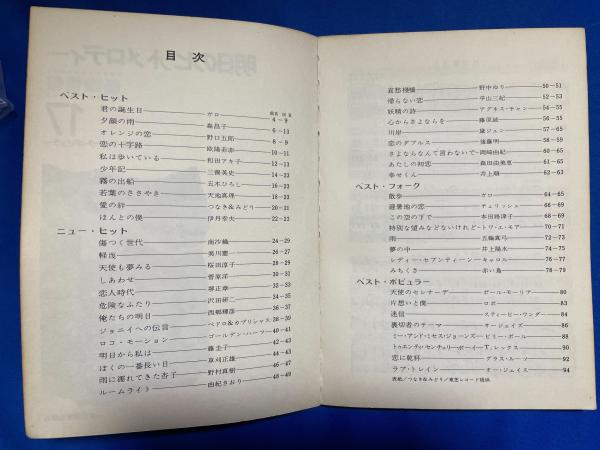 目次
ベスト・ヒット
君の誕生日 ガロ 4－9
夕顔の雨 森昌子 6－13
オレンジの恋 野口五郎 8－9
恋の十字路 欧陽菲菲 10－11
私は歩いている 和田アキ子 12－13
少年記 三善英史 14－15
霧の出船 五木ひろし 16－23
若葉のささやき 天地真理 18－20－21
愛の絆 つなき&みどり 20－21
ほんとの僕 伊丹幸夫 22－23
ニュー・ヒット
傷つく世代 南沙織 24－29
軽浅 美川憲一 26－27
天使も夢みる 桜田淳子 28－29
しあわせ 菅原洋一 30－31
恋人時代 堺正章 32－33
危険なふたり 沢田研二 34－35
俺たちの明日 西郷輝彦 36－37
ジョニイへの伝言 ペドロ&カプリシャス 38－39
ロコ・モーション ゴールデン・ハーフ 40－41
明日から私は 藤圭子 42－43
ぼくの一番長い日 草刈正雄 44－45
雨に濡れてきた杏子 野村真樹 46－47
ルームライト 由紀さおり 48－49
哀愁棧橋 野中ゆり 50－51
帰らない恋 平山三紀 52－53
妖精の詩 アグネス・チャン 54－55
心からさよならを 藤原誠 54－55
川岸 黛ジュン 56－57
恋のダブルス 後藤明 58－59
さよならなんて言わないで 岡崎由紀 60－61
あたしの初恋 森田由美恵 60－61
幸せくん 井上順 62－63
ベスト・フォーク
散歩 ガロ 64－65
避暑地の恋 チェリッシュ 66－67
この空の下で 本田路津子 68－69
特別な望みなどないけれど トワ・エ・モア 70－71
雨 五輪真弓 72－73
夢の中 井上陽水 74－75
レディー・セブンティーン キャロル 76－77
みちくさ 赤い鳥 78－79
ベスト・ポピュラー
天使のセレナーデ ポール・モーリア 80
片想いと僕 ロボ 82
迷信 スティービー・ワンダー 84
裏切者のテーマ オージェイズ 86
ミー・アンド・ミセス・ジョーンズ ビリー・ポール 88
トゥエンティ・センチュリー・ボーイ T.レックス 90
恋に乾杯 グラス・ルーツ 92
ラブ・トレイン オー・ジェイズ 94
表紙/つなき&みどり/東芝レコード提供